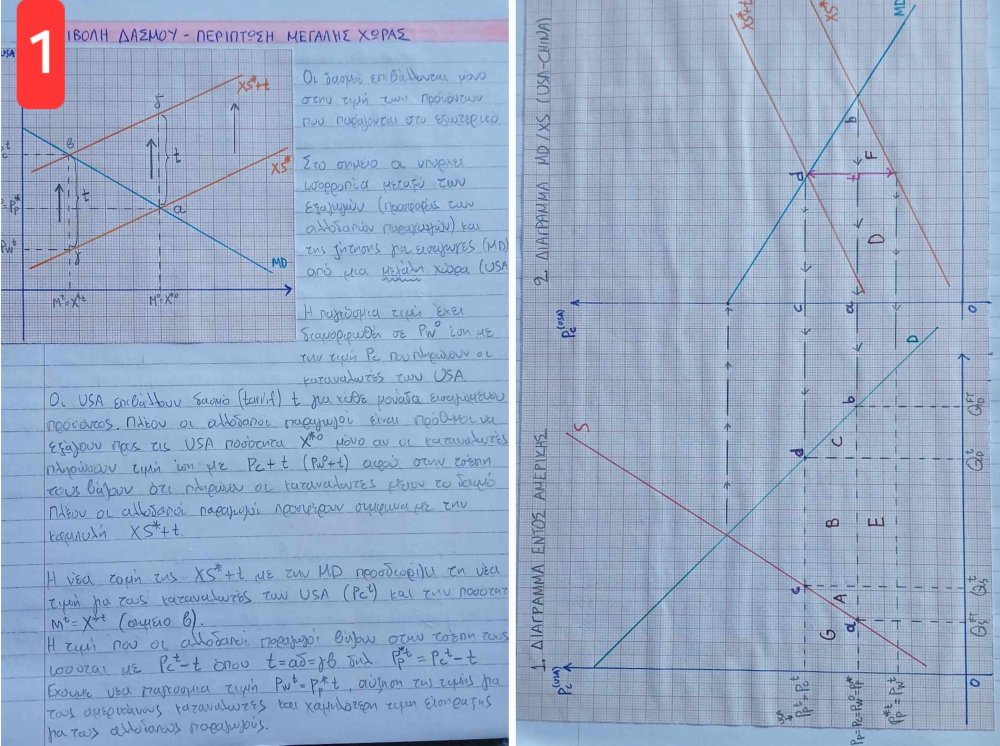 1
ΙΒΟΛΗ ΔΑΣΜΟΥ - ΠΕΡΙΠΤΩΣΗ ΜΕΓΑΛΗΣ ΧΩΡΑΣ
USA
XS*+t
XS*
MD
δ
β
t
t
a
γ
Pw^t
M^t=X*^t
M^0=X*^0
Οι δασμοί επιβάλλονται μόνο
στην τιμή των προϊόντων
που παράγονται στο εξωτερικό.
Στο σημείο α υπάρχει
ισορροπία μεταξύ των
εξαγωγών (προσφοράς των
αλλοδαπών παραγωγών) και
της ζήτησης για εισαγωγές (MD)
από μια μεγάλη χώρα (USA
Η παγκόσμια τιμή έχει
διαμορφωθεί σε Pw^0 ίση με
την τιμή Pc που πληρώνουν οι
καταναλωτές των USA
Οι USA επιβάλλουν δασμό (tarrif) t για κάθε μονάδα εισαγόμενου
προϊόντος. Πλέον οι αλλοδαποί παραγωγοί είναι πρόθυμοι να
εξάγουν προς τις USA ποσότητα X*^0 μόνο αν οι καταναλωτές
πληρώνουν τιμή ίση με Pc+t (Pw^0+t) αφού στην τσέπη
τους βάζουν ότι πληρώνουν οι καταναλωτές μείον το δασμό
Πλέον οι αλλοδαποί παραγωγοί προσφέρουν σύμφωνα με την
καμπύλη XS*+t.
Η νέα τομή της XS*+t με την MD προσδιορίζει τη νέα
τιμή για τους καταναλωτές των USA (Pc^t) και την ποσότητα
M^t=X*^t (σημείο β).
Η τιμή που οι αλλοδαποί παραγωγοί βάζουν στην τσέπη τους
ισούται με Pc^t-t όπου t=αδ=γβ δηλ Pp*^t=Pc^t-t
Έχουμε νέα παγκόσμια τιμή Pw^t=Pp*^t, αύξηση της τιμής για
τους αμερικάνους καταναλωτές και χαμηλότερη τιμή είσπραξης
για τους αλλοδαπούς παραγωγούς.
2. ΔΙΑΓΡΑΜΜΑ MD/XS (USA-CHINA)
Pc(USA)
XS*+t
XS*
MD
d
b
t
F
D
c
a
0
1. ΔΙΑΓΡΑΜΜΑ ΕΝΤΟΣ ΑΜΕΡΙΚΗΣ
Pc(USA)
S
D
d
b
C
B
E
c
A
a
G
Pp^t=Pc^t
Pp=Pc=Pw^0=Pp*
Pp*^t=Pw^t
0
Qs^FT
Qs^t
QD^t
QD^FT